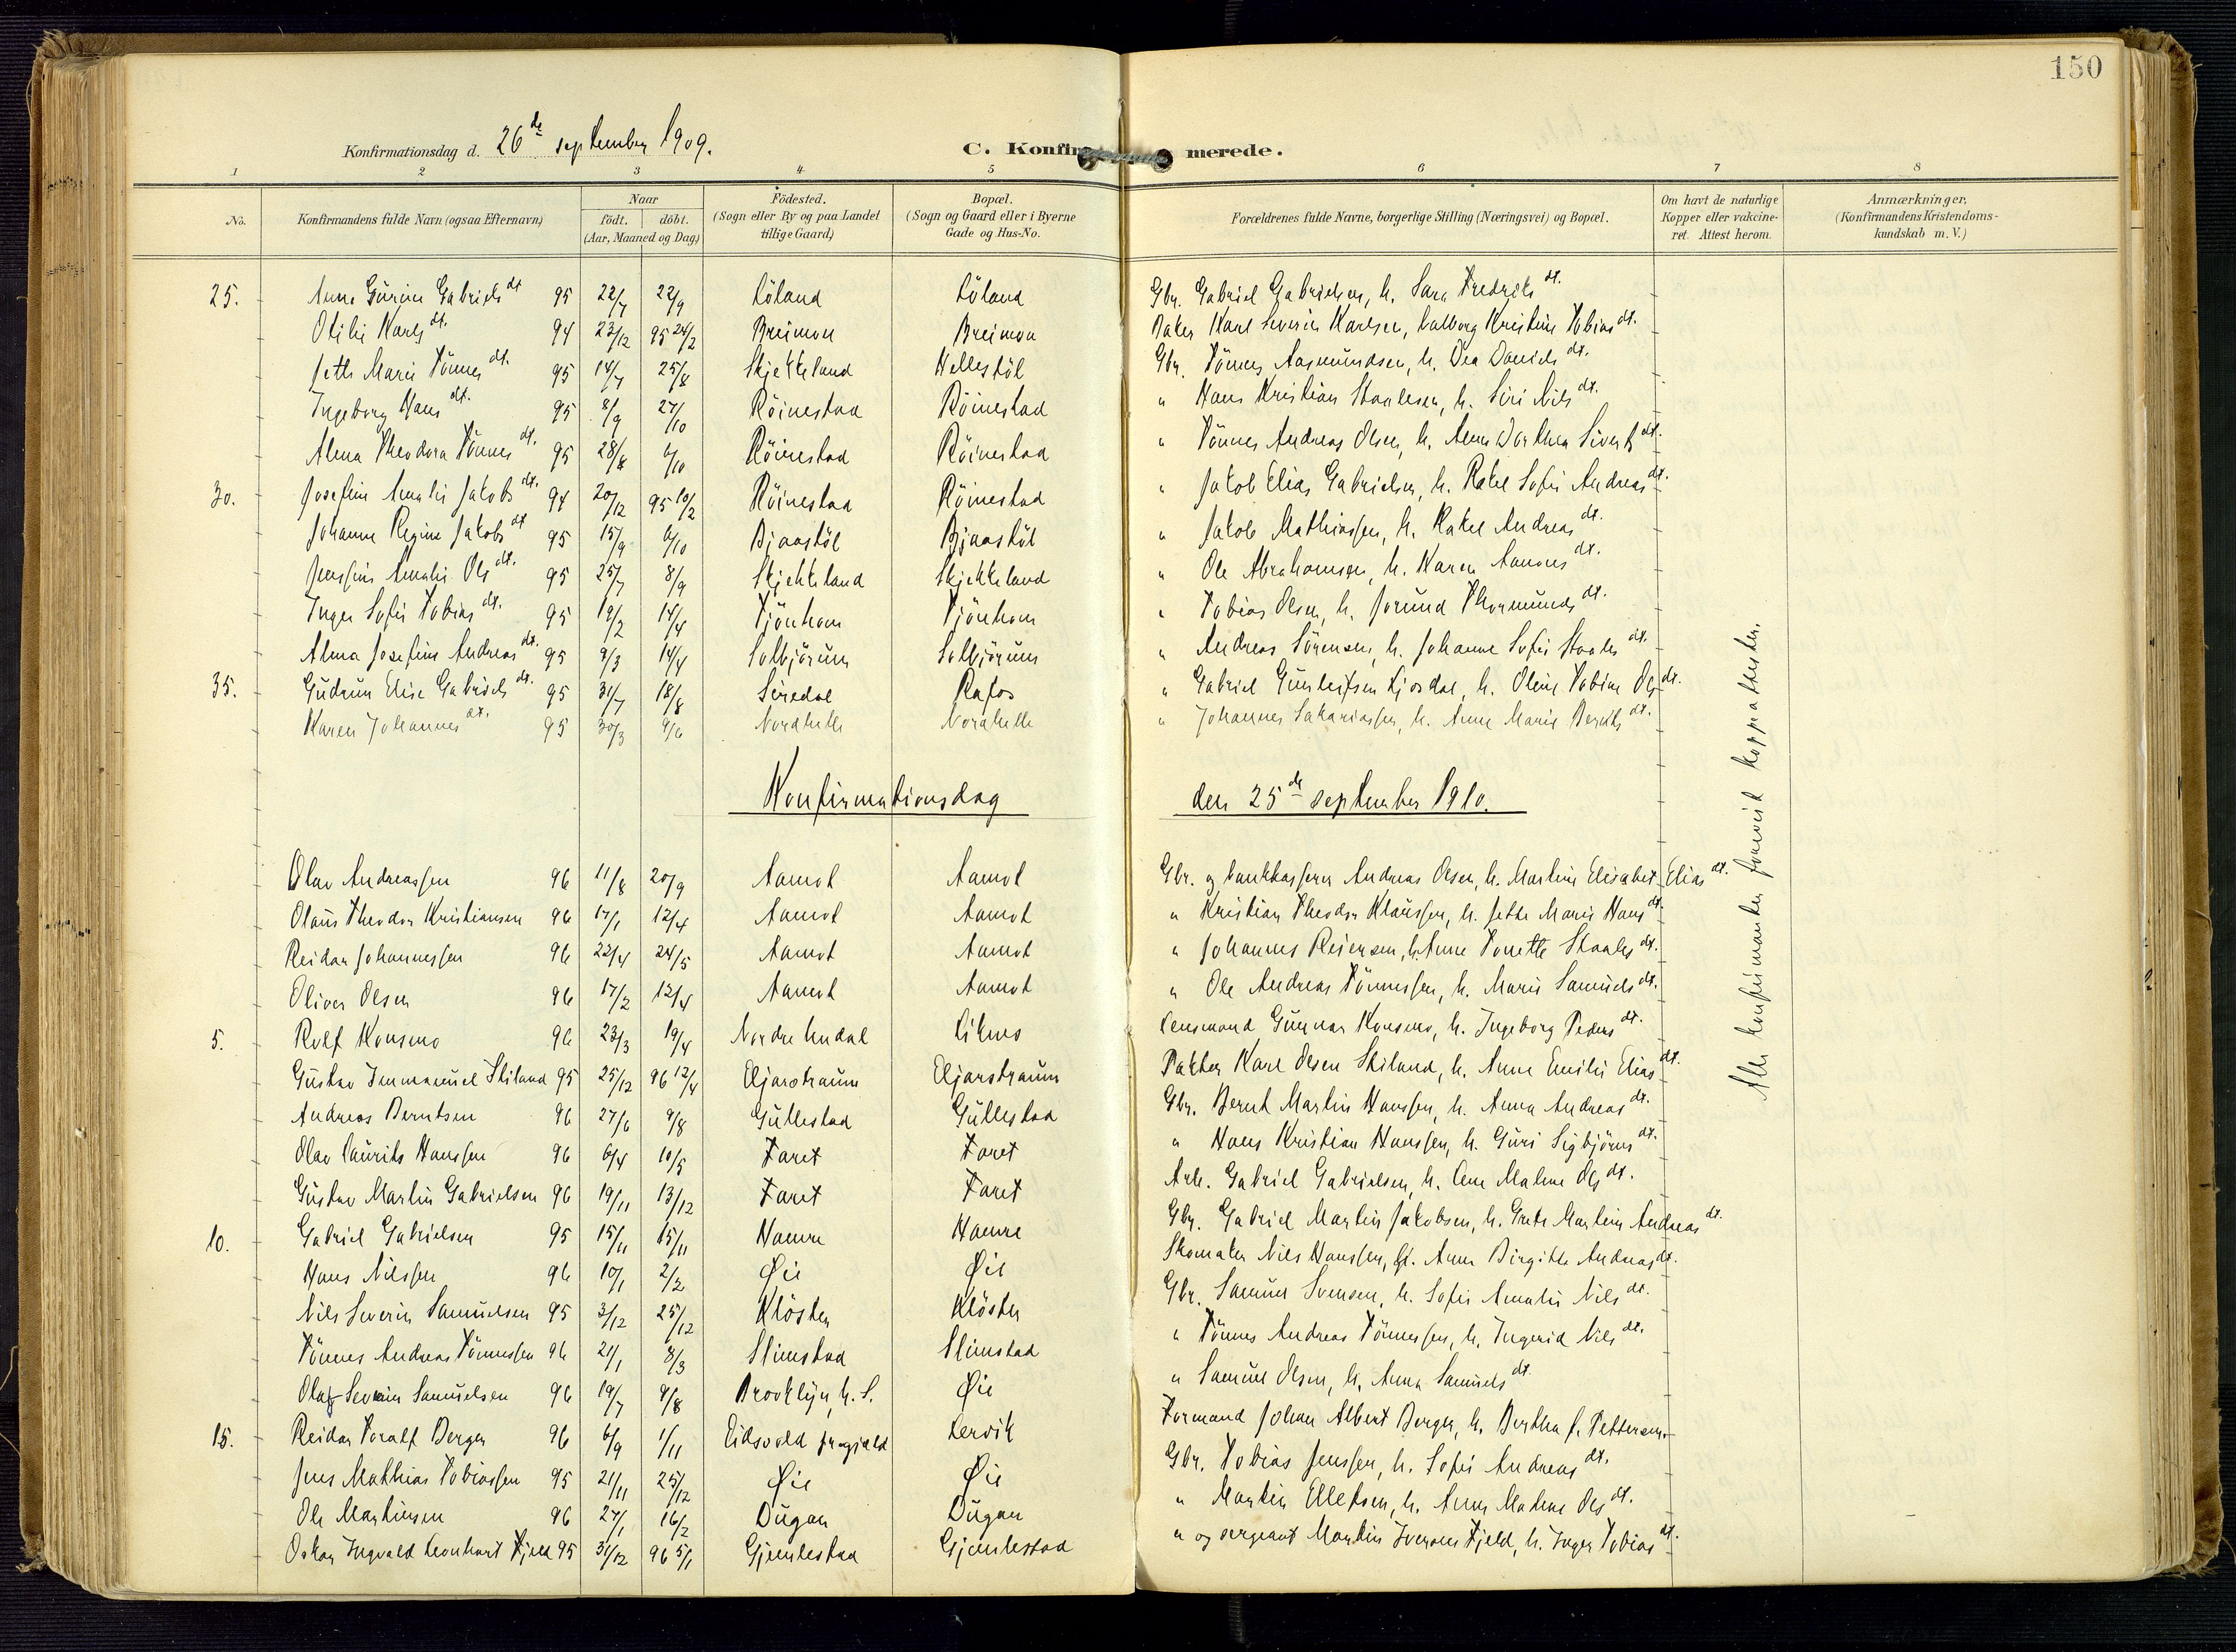 150
Konfirmationsdag d. 26de september 1909. C. Konfir merede.
1 2 3 4 5 6 7 8
No. Konfirmandens fulde Navn (ogsaa Efternavn) Naar født. døbt. (Aar, Maaned og Dag) Fødested. (Sogn eller By og paa Landet tillige Gaard) Bopæl. (Sogn og Gaard eller i Byerne Gade og Hus-No. Forældrenes fulde Navne, borgerlige Stilling (Næringsvei) og Bopæl. Om havt de naturlige Kopper eller vakcineret. Attest herom. Anmærkninger, (Konfirmandens Kristendomskundskab m. V.)
25. Anne Gurine Gabriels dt 95 22/7 22/9 Löland Löland Gbr. Gabriel Gabrielsen, h. Sara Fredriks dt.
Otilie Karls dt. 94 23/12 95 24/2 Breimon Breimon Baker Karl Severin Karlsen, Valborg Kristine Tobias dt.
Jette Marie Tönnes dt. 95 14/7 25/8 Skjekkeland Hellestöl Gbr. Tönnes Aasmundsen, h. Dea Daniels dt.
Ingeborg Hans dt. 95 8/9 27/10 Röinestad Röinestad " Hans Kristian Staalesen, h. Siri Nils dt.
Alma Theodora Tönnes dt. 95 28/8 6/10 Röinestad Röinestad " Tönnes Andreas Olsen, h. Anne Dorthea Siverts dt.
30. Josefine Amalie Jakobs dt. 94 20/12 95 10/2 Röinestad Röinestad " Jakob Elias Gabrielsen, h. Rakel Sofie Andreas dt.
Johanne Regine Jakobs dt 95 15/9 6/10 Bjaastöl Bjaastöl " Jakob Mathiassen, h. Rakel Andreas dt.
Jensine Amalie Ols dt. 95 25/7 8/9 Skjekkeland Skjekkeland " Ole Abrahamsen, h. Karen Aanons dt.
Inger Sofie Tobias dt. 95 19/2 14/4 Tjönhom Tjönhom " Tobias Olsen, h. Jorund Thormunds dt.
Alma Josefine Andreas dt. 95 9/3 14/4 Solbjörum Solbjörum " Andreas Sörensen, h. Johanne Sofie Staales dt.
35. Gudrun Elise Gabriels dt. 95 31/7 18/8 Siredal Rafos " Gabriel Gunleifsen Ljosdal, h. Oline Tobine Ols dt.
Karen Johannes dt. 95 30/3 9/6 Nordhelle Nordhelle " Johannes Sakariassen, h. Anne Marie Bernts dt.
Konfirmationsdag den 25de september 1910.
Olav Andreassen 96 11/8 20/9 Aamot Aamot Gbr. og bankkasserer Andreas Olsen, h. Martine Elisabet Elias dt.
Olaus Theodor Kristiansen 96 17/1 12/4 Aamot Aamot " Kristian Theodor Klaussen, h. Jette Marie Hans dt.
Reidar Johannessen 96 22/4 24/5 Aamot Aamot " Johannes Reiersen, h. Anne Tonette Staales dt.
Oliver Olsen 96 17/2 12/4 Aamot Aamot " Ole Andreas Tönnessen, h. Marie Samuels dt.
5. Rolf Konsmo 96 23/3 19/4 Nordre Undal Liknes Lensmand Gunnar Konsmo, h. Ingeborg Peders dt.
Gustav Immanuel Skiland 95 25/12 96 12/4 Eljarstraum Eljarstraum Pakter Karl Olsen Skiland, h. Anne Emilie Elias dt.
Andreas Berntsen 96 27/6 9/8 Gullestad Gullestad Gbr. Bernt Martin Hanssen, h. Anna Andreas dt.
Olav Laurits Hanssen 96 6/4 10/5 Faret Faret " Hans Kristian Hanssen, h. Guri Sigbjörns dt.
Gustav Martin Gabrielsen 96 19/11 13/12 Faret Faret Arb. Gabriel Gabrielsen, h. Ane Malene Ols dt.
10. Gabriel Gabrielsen 95 15/11 15/11 Hamre Hamre Gbr. Gabriel Martin Jakobsen, h. Grete Martine Andreas dt.
Hans Nilssen 96 10/1 2/2 Øie Øie Skomaker Nils Hanssen, h. Anne Birgitte Andreas dt.
Nils Severin Samuelsen 95 3/12 25/12 Klöster Klöster Gbr. Samuel Svensen, h. Sofie Amalie Nils dt.
Tönnes Andreas Tönnessen 96 21/1 8/3 Slimstad Slimstad " Tönnes Andreas Tönnessen, h. Ingerid Nils dt.
Olaf Severin Samuelsen 96 19/7 9/8 Brooklyn, U. S. Øie " Samuel Olsen, h. Anna Samuels dt.
15. Reidar Toralf Berger 96 6/9 1/11 Eidsvold prgjeld Lervik Formand Johan Albert Berger, h. Bertha J. Pettersen.
Jens Mathias Tobiassen 95 21/11 25/12 Øie Øie Gbr. Tobias Jenssen, h. Sofie Andreas dt.
Ole Martinsen 96 27/1 16/2 Dugan Dugan " Martin Ellefsen, h. Anne Malene Ols dt.
Oskar Ingvald Leonhart Fjeld 95 31/12 96 5/1 Gjemlestad Gjemlestad " og sergeant Martin Iversen Fjeld, h. Inger Tobias dt.
Alle konfirmanter foreviste koppeattester.